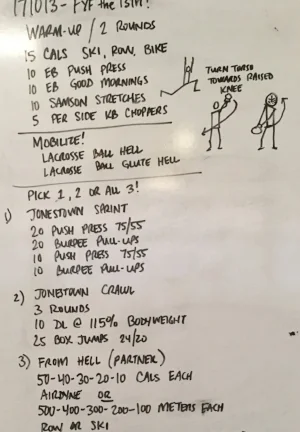 171013 - FYF the 13th!
WARM-UP / 2 ROUNDS
15 CALS SKI, ROW, BIKE
10 EB PUSH PRESS
10 EB GOOD MORNINGS
10 SAMSON STRETCHES
5 PER SIDE KB CHOPPERS
TURN TORSO
TOWARDS RAISED
KNEE
MOBILITZ!
LACROSSE BALL HELL
LACROSSE BALL GLUTE HELL
PICK 1, 2 OR ALL 3!
1) JONESTOWN SPRINT
20 PUSH PRESS 75/55
20 BURPEE PULL-UPS
10 PUSH PRESS 75/55
10 BURPEE PULL-UPS
2) JONESTOWN CRAWL
3 ROUNDS
10 DL @ 115% BODYWEIGHT
25 BOX JUMPS 24/20
3) FROM HELL (PARTNER)
50-40-30-20-10 CALS EACH
AIRDYNE OR
500-400-300-200-100 METERS EACH
ROW OR SKI